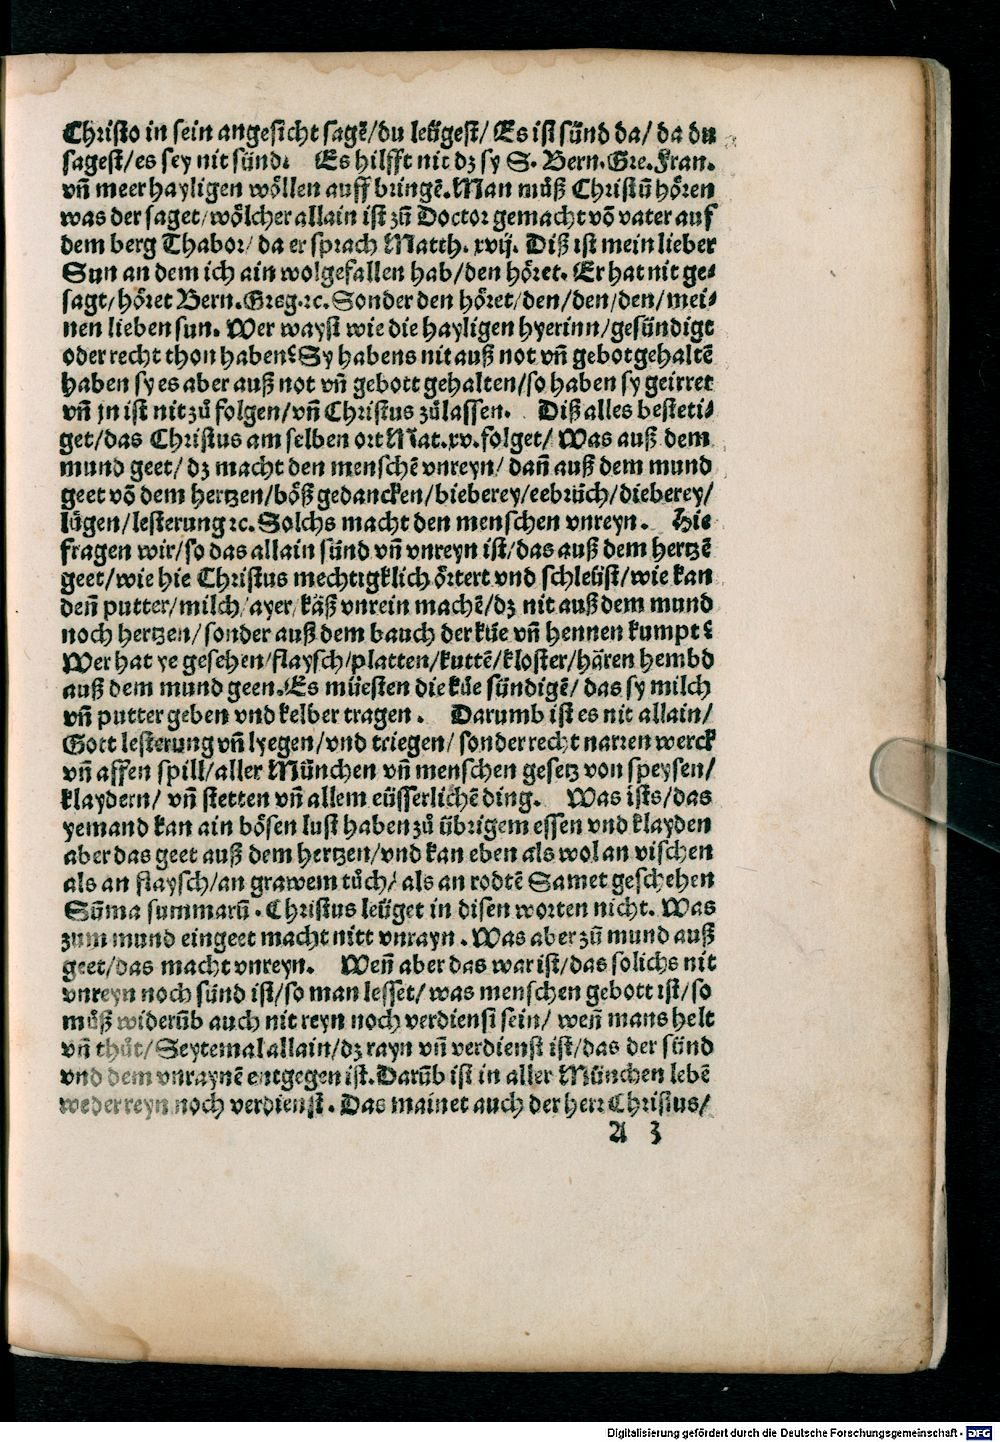 Christo in sein angesicht sagē/du leügest/ Es ist sünd da/ da du
sagest/es sey nit sünd: Es hilfft nit dz sy S. Bern. Gre. Fran.
vñ meer hayligen wöllen auff bringē. Man můß Christū hören
was der saget/wölcher allain ist zū Doctor gemacht vō vater auf
dem berg Thabor/ da er sprach Matth. xvij. Diß ist mein lieber
Sun an dem ich ain wolgefallen hab/den höret. Er hat nit ge⸗
sagt/höret Bern. Greg.ꝛc. Sonder den höret/den/den/den/mei⸗
nen lieben sun. Wer wayst wie die hayligen hyerinn/gesündigt
oder recht thon haben? Sy habens nit auß not vñ gebot gehaltē
haben sy es aber auß not vñ gebott gehalten/so haben sy geirret
vñ jn ist nit zů folgen/vñ Christus zůlassen. Diß alles besteti⸗
get/das Christus am selben ort Mat.xv.folget/ Was auß dem
mund geet/ dz macht den menschē vnreyn/ dañ auß dem mund
geet vō dem hertzen/böß gedancken/bieberey/eebrüch/dieberey/
lügen/lesterung ꝛc. Solchs macht den menschen vnreyn. Hie
fragen wir/so das allain sünd vñ vnreyn ist/das auß dem hertzē
geet/wie hie Christus mechtigklich örtert vnd schleüst/wie kan
deñ putter/milch/ayer/käß vnrein machē/dz nit auß dem mund
noch hertzen/sonder auß dem bauch der küe vñ hennen kumpt?
Wer hat ye gesehen/flaysch/platten/kuttē/kloster/hären hembd
auß dem mund geen. Es müesten die küe sündigē/ das sy milch
vñ putter geben vnd kelber tragen. Darumb ist es nit allain/
Gott lesterung vñ lyegen/vnd triegen/ sonder recht narren werck
vñ affen spill/aller München vñ menschen gesetz von speysen/
klaydern/ vñ stetten vñ allem eüsserlichē ding. Was ists/das
yemand kan ain bösen lust haben zů übrigem essen vnd klayden
aber das geet auß dem hertzen/vnd kan eben als wol an vischen
als an flaysch/an grawem tůch/ als an rodtē Samet geschehen
Sūma summarū. Christus leüget in disen worten nicht. Was
zum mund eingeet macht nitt vnrayn. Was aber zū mund auß
geet/das macht vnreyn. Weñ aber das war ist/das solichs nit
vnreyn noch sünd ist/so man lesset/ was menschen gebott ist/so
můß widerūb auch nit reyn noch verdienst sein/ weñ mans helt
vñ thůt/ Seytemal allain/dz rayn vñ verdienst ist/das der sünd
vnd dem vnraynē entgegen ist. Darūb ist in aller München lebē
weder reyn noch verdienst. Das mainet auch der herr Christus/
A 3
Digitalisierung gefördert durch die Deutsche Forschungsgemeinschaft - DFG